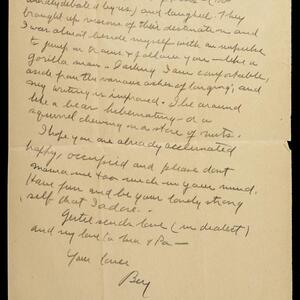 and laughed. They
brought up visions of their destination and
I was almost beside myself with an impulse
to jump on a train & follow you — like a
gorilla man — Darling I am comfortable,
aside from the various aches of longing, and
my writing is improved. I lie around
like a bear hibernating — or a
squirrel chewing on a store of nuts.
I hope you are already acclimated
happy, occupied and please dont
mama me too much in your mind.
Have fun and be your lovely strong
self that I adore.
sends love (in dialect)
and my love to Ma & Pa —
Your lover
Ben